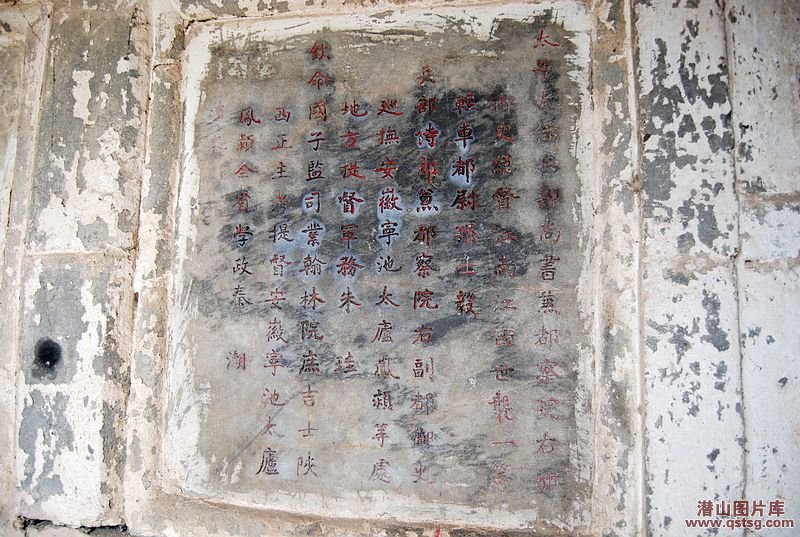 太子太保兵部尚書兼都察院右都
御史總督江南江西世襲一等
輕車都尉孫士毅
兵部侍郎兼都察院右副都御史
巡撫安徽寧池太廬鳳潁等處
地方提督軍務朱珪
欽命國子監司業翰林院庶吉士陝
西正主考提督安徽寧池太廬
鳳潁全省學政秦潮
潜山图片库
www.qstsg.com